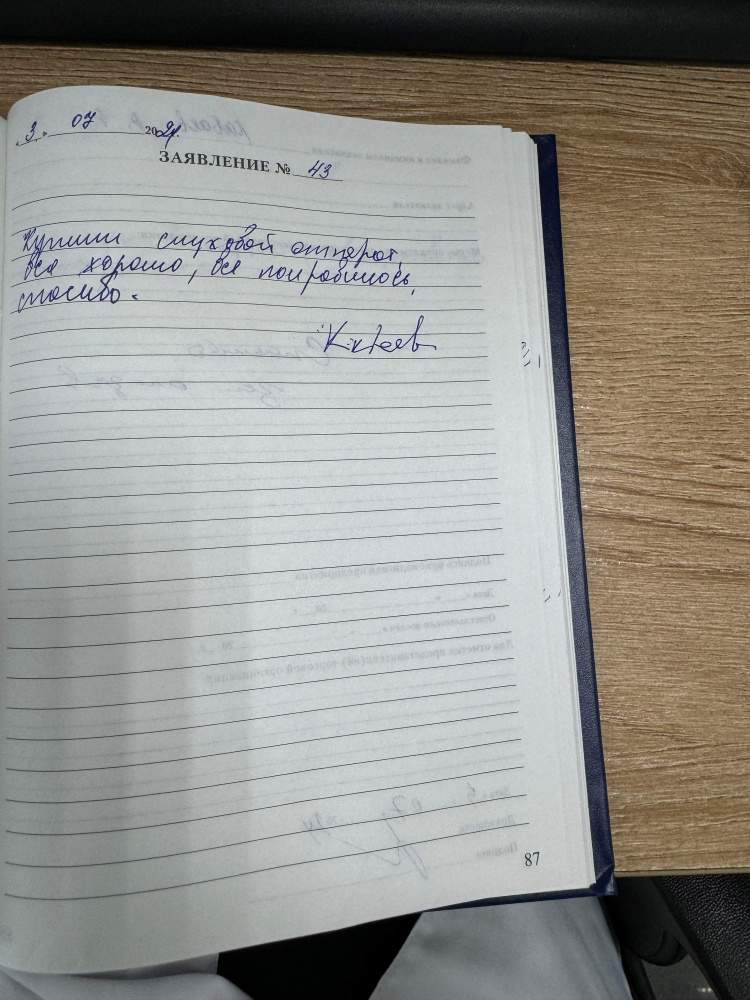 «3» 07 2024.
ЗАЯВЛЕНИЕ № 43
Купили слуховой аппарат,
все хорошо, все понравилось,
спасибо.
87